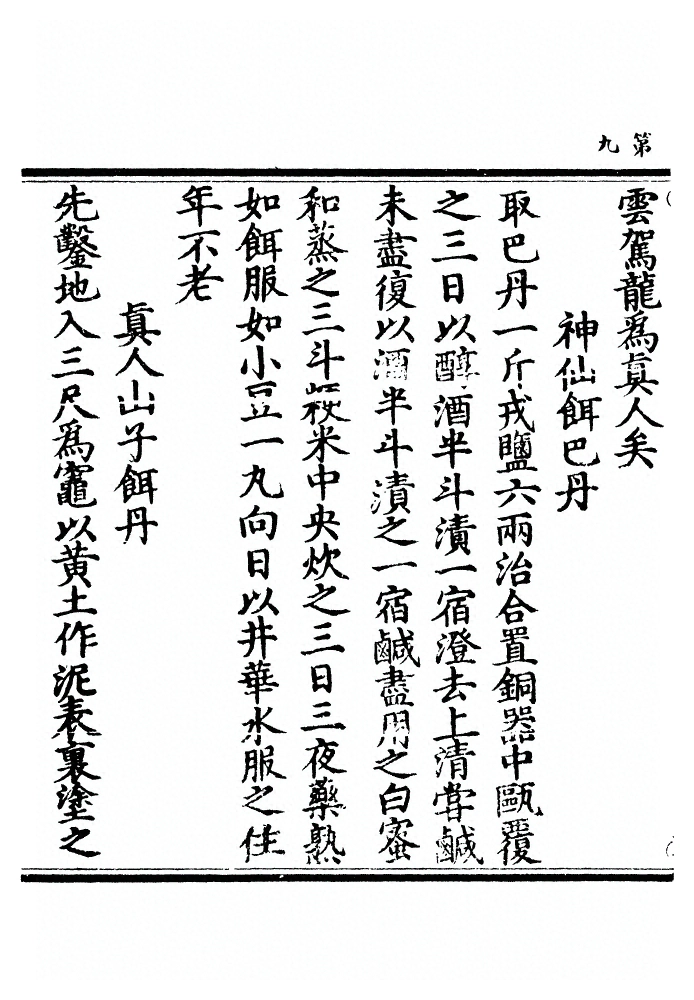 第九
雲駕龍爲眞人矣
神仙餌巴丹
取巴丹一斤戎鹽六兩治合置銅器中甌覆
之三日以醇酒半斗漬一宿澄去上清嘗鹹
未盡復以酒半斗漬之一宿鹹盡用之白蜜
和蒸之三斗米中央炊之三日三夜藥熟
如餌服如小豆一丸向日以井華水服之住
年不老
眞人山子餌丹
先鑿地入三尺爲竈以黄土作泥表裏塗之